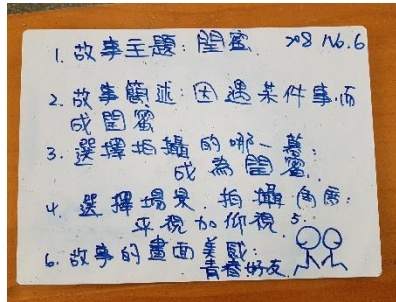 1. 故事主題：閨蜜 708 No.6
2. 故事簡述：因遇某件事.而
成閨蜜
3. 選擇拍攝的哪一幕：
成為閨蜜.
4. 選擇場景.拍攝角度：
平視加仰視. 5.
6. 故事的畫面美感：
青春好友